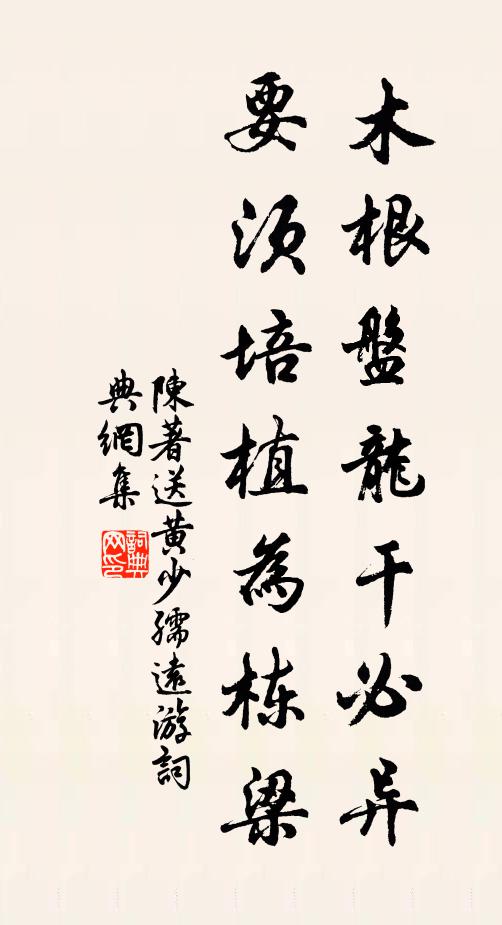 木根盤龍干必异
要須培植為栋梁
陳著送黄少孺遠游詞
典網集
詞典网印